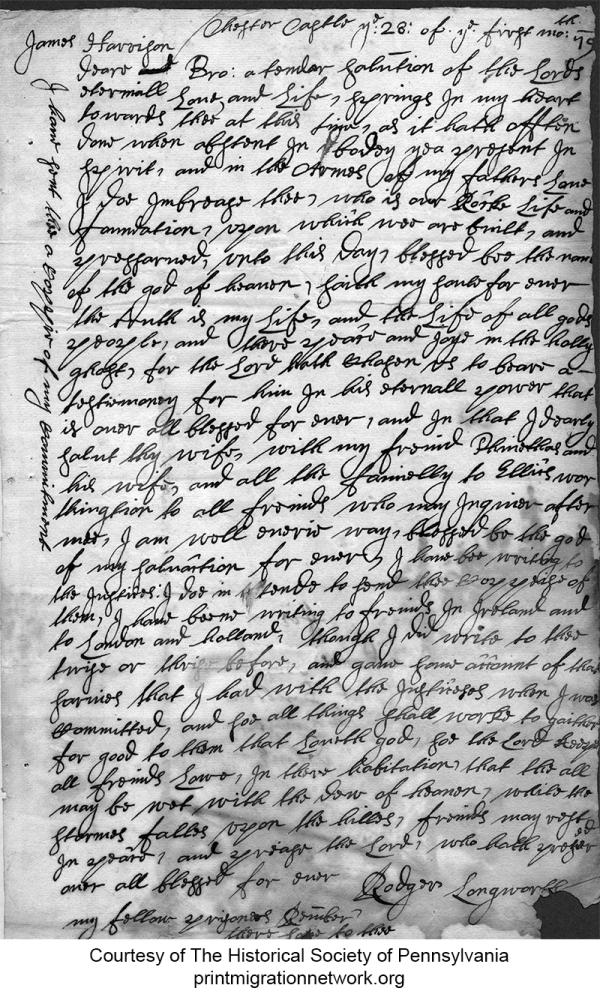 Chester Castle ye: 28: of: ye first mo: th
James Harrison
deare Bro: a tendar salution of the Lords
eternall Love, and Life, springs In my heart
towards thee at this time, as it hath offten
done when abstent In bodey yea present In
spirit, and in the Armes of my fathers Love
I doe Imbrease thee, who is our Rocke Life and
foundation, upon which wee are built, and
presarned, unto this day, blessed bee the name
of the god of heaven, saith my soule for ever
the truth is my Life, and the Life of all gods
people, and there peace and Joye in the holly
ghost, for the Lord hath Chosen us to beare a-
testiemoney for him In his eternall power that
is over all blessed for ever, and In that I dearly
salut thy wife, with my freind Phinethas and
his wife, and all the famielly to Ellies wor
thingtion to all freinds who may Inquier after
mee, I am well everie way, blessed be the god
of my salvation for ever, I have bee writing to
the Justices: I doe in tende to send thee Coppeise of
them, I have beene writing to freinds In Ireland and
to London and holland, though I did write to thee
twise or thrise before, and gave some account of that
sarvies that I had with the Justiceses when I was
Committed, and soe all things shall worke to gaither
for good to them that Loveth god, soe the Lord keepe
all freinds Lowe, In there habitation, that the all
may be wet with the dew of heaven, while the
stormes falles upon the hilles, freinds may rest
In peace, and prease the Lord, who hath
over all blessed for ever Rodger Longworth
my fellow prisoners Rember
there love to thee
I have sent thee a Coppie of my Commitment
Courtesy of The Historical Society of Pennsylvania
printmigrationnetwork.org